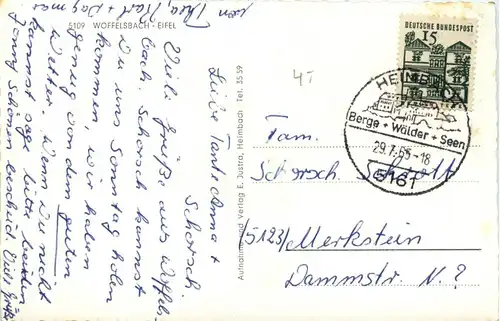 5109 WOFFELSBACH - EIFEL
Liebe Tante Anna +
Schorsch
Viele Grüße aus Woffels-
bach. Schorsch kannst
Du uns Sonntag holen
kommen, wir haben
genug von dem guten
Wetter. Wenn Du nicht
kannst sage bitte beiden
Jenny Schönen bescheid. Viele Grüße
von Thea, Karl + Dagmar
Aufnahme und Verlag E. Justra, Heimbach Tel. 35 59
4T
DEUTSCHE BUNDESPOST
15
HEIMB
Berge + Wälder + Seen
29.7.65-18
5167
Fam.
Schorsch. Schött
(5123) Merkstein
Dammstr. N.?